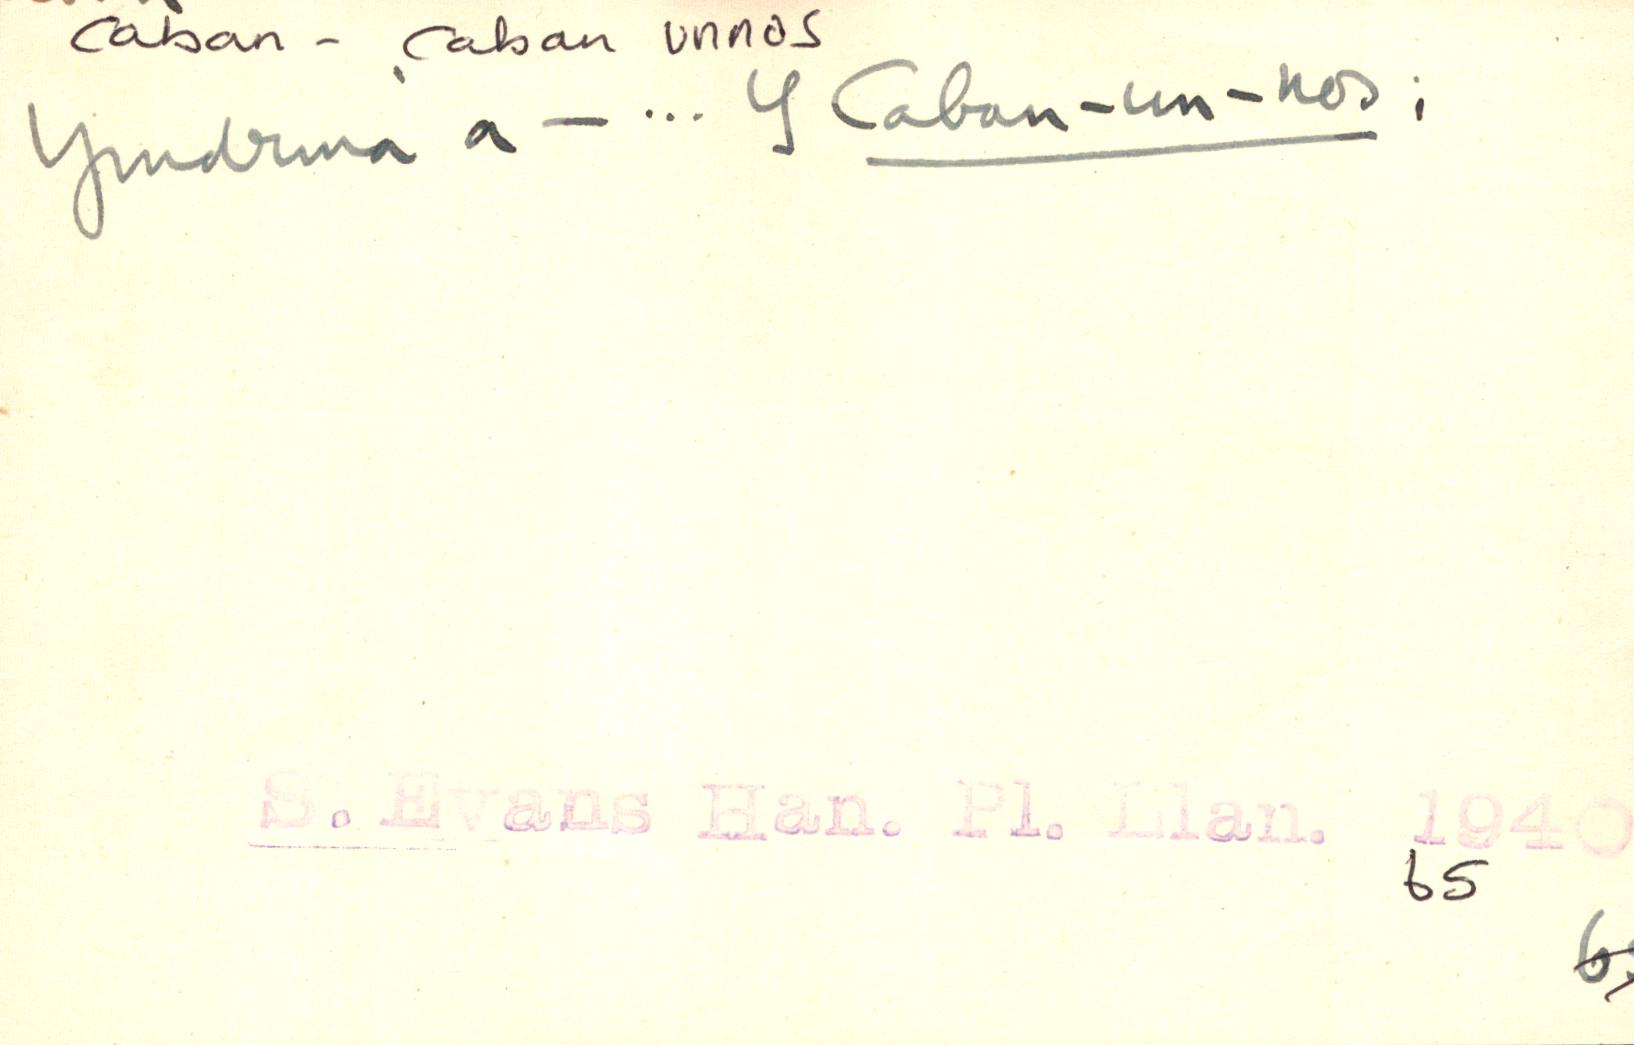 caban - caban unnos
Ymdrina â — ... Y Caban-un-nos;
S. Evans Han. Pl. Llan. 1940
65